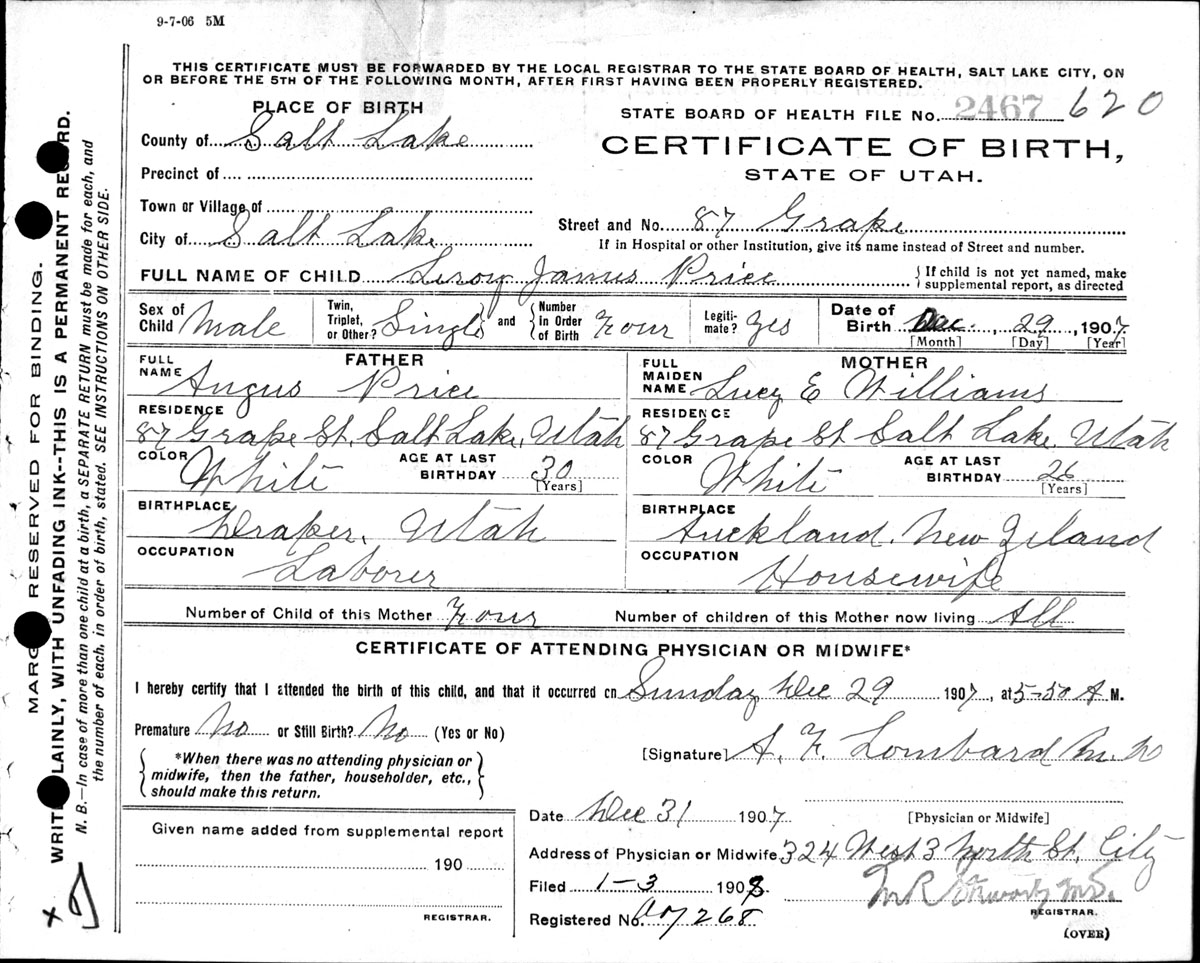 9-7-06 5M
THIS CERTIFICATE MUST BE FORWARDED BY THE LOCAL REGISTRAR TO THE STATE BOARD OF HEALTH, SALT LAKE CITY, ON
OR BEFORE THE 5TH OF THE FOLLOWING MONTH, AFTER FIRST HAVING BEEN PROPERLY REGISTERED.
PLACE OF BIRTH
County of Salt Lake
Precinct of
Town or Village of
City of Salt Lake
STATE BOARD OF HEALTH FILE No. 2467 620
CERTIFICATE OF BIRTH,
STATE OF UTAH.
Street and No. 87 Grape
If in Hospital or other Institution, give its name instead of Street and number.
FULL NAME OF CHILD Leroy James Price
{ If child is not yet named, make
supplemental report, as directed
Sex of Child Male
Twin, Triplet, or Other? Single } and { Number in Order of Birth Four
Legiti-mate? Yes
Date of Birth Dec. 29, 1907
[Month] [Day] [Year]
FATHER
FULL NAME Angus Price
RESIDENCE
87 Grape St. Salt Lake, Utah
COLOR White AGE AT LAST BIRTHDAY 30
[Years]
BIRTHPLACE
Draper, Utah
OCCUPATION
Laborer
MOTHER
FULL MAIDEN NAME Lucy E Williams
RESIDENCE
87 Grape St Salt Lake, Utah
COLOR White AGE AT LAST BIRTHDAY 26
[Years]
BIRTHPLACE
Auckland, New Zeland
OCCUPATION
Housewife
Number of Child of this Mother Four Number of children of this Mother now living All
CERTIFICATE OF ATTENDING PHYSICIAN OR MIDWIFE*
I hereby certify that I attended the birth of this child, and that it occurred on Sunday Dec 29 1907, at 5-50 A M.
Premature No or Still Birth? No (Yes or No)
{ *When there was no attending physician or
midwife, then the father, householder, etc.,
should make this return. }
[Signature] A. F. Lombard M.D
[Physician or Midwife]
Given name added from supplemental report
190
REGISTRAR.
Date Dec 31 1907
Address of Physician or Midwife 324 West 3 North St. City
Filed 1-3 1908
Registered No. 268
REGISTRAR.
(OVER)
MARG RESERVED FOR BINDING.
WRITE LAINLY, WITH UNFADING INK--THIS IS A PERMANENT RECORD.
N. B.—In case of more than one child at a birth, a SEPARATE RETURN must be made for each, and
the number of each, in order of birth, stated. SEE INSTRUCTIONS ON OTHER SIDE.
x